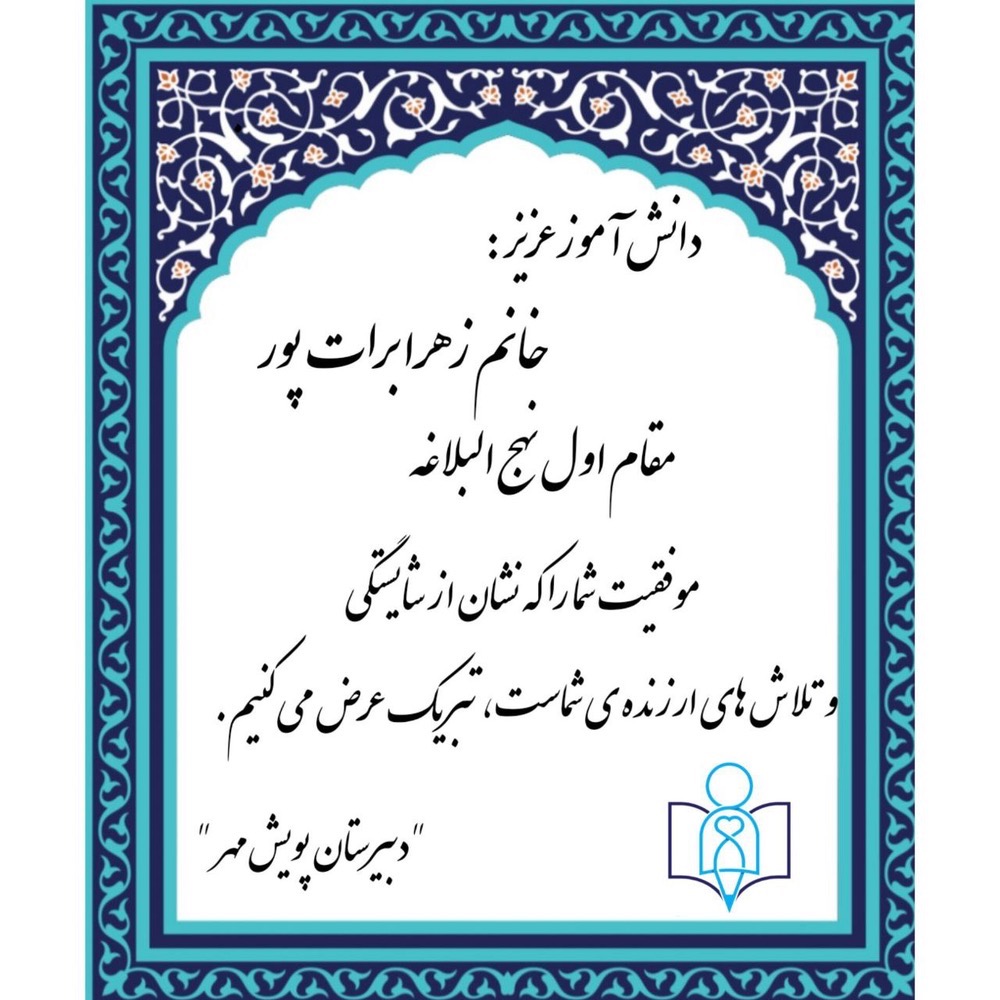 دانش آموز عزیز :
خانم زهرا برات پور
مقام اول نهج البلاغه
موفقیت شما را که نشان از شایستگی
و تلاش های ارزنده ی شماست، تبریک عرض می کنیم .
"دبیرستان پویش مهر"